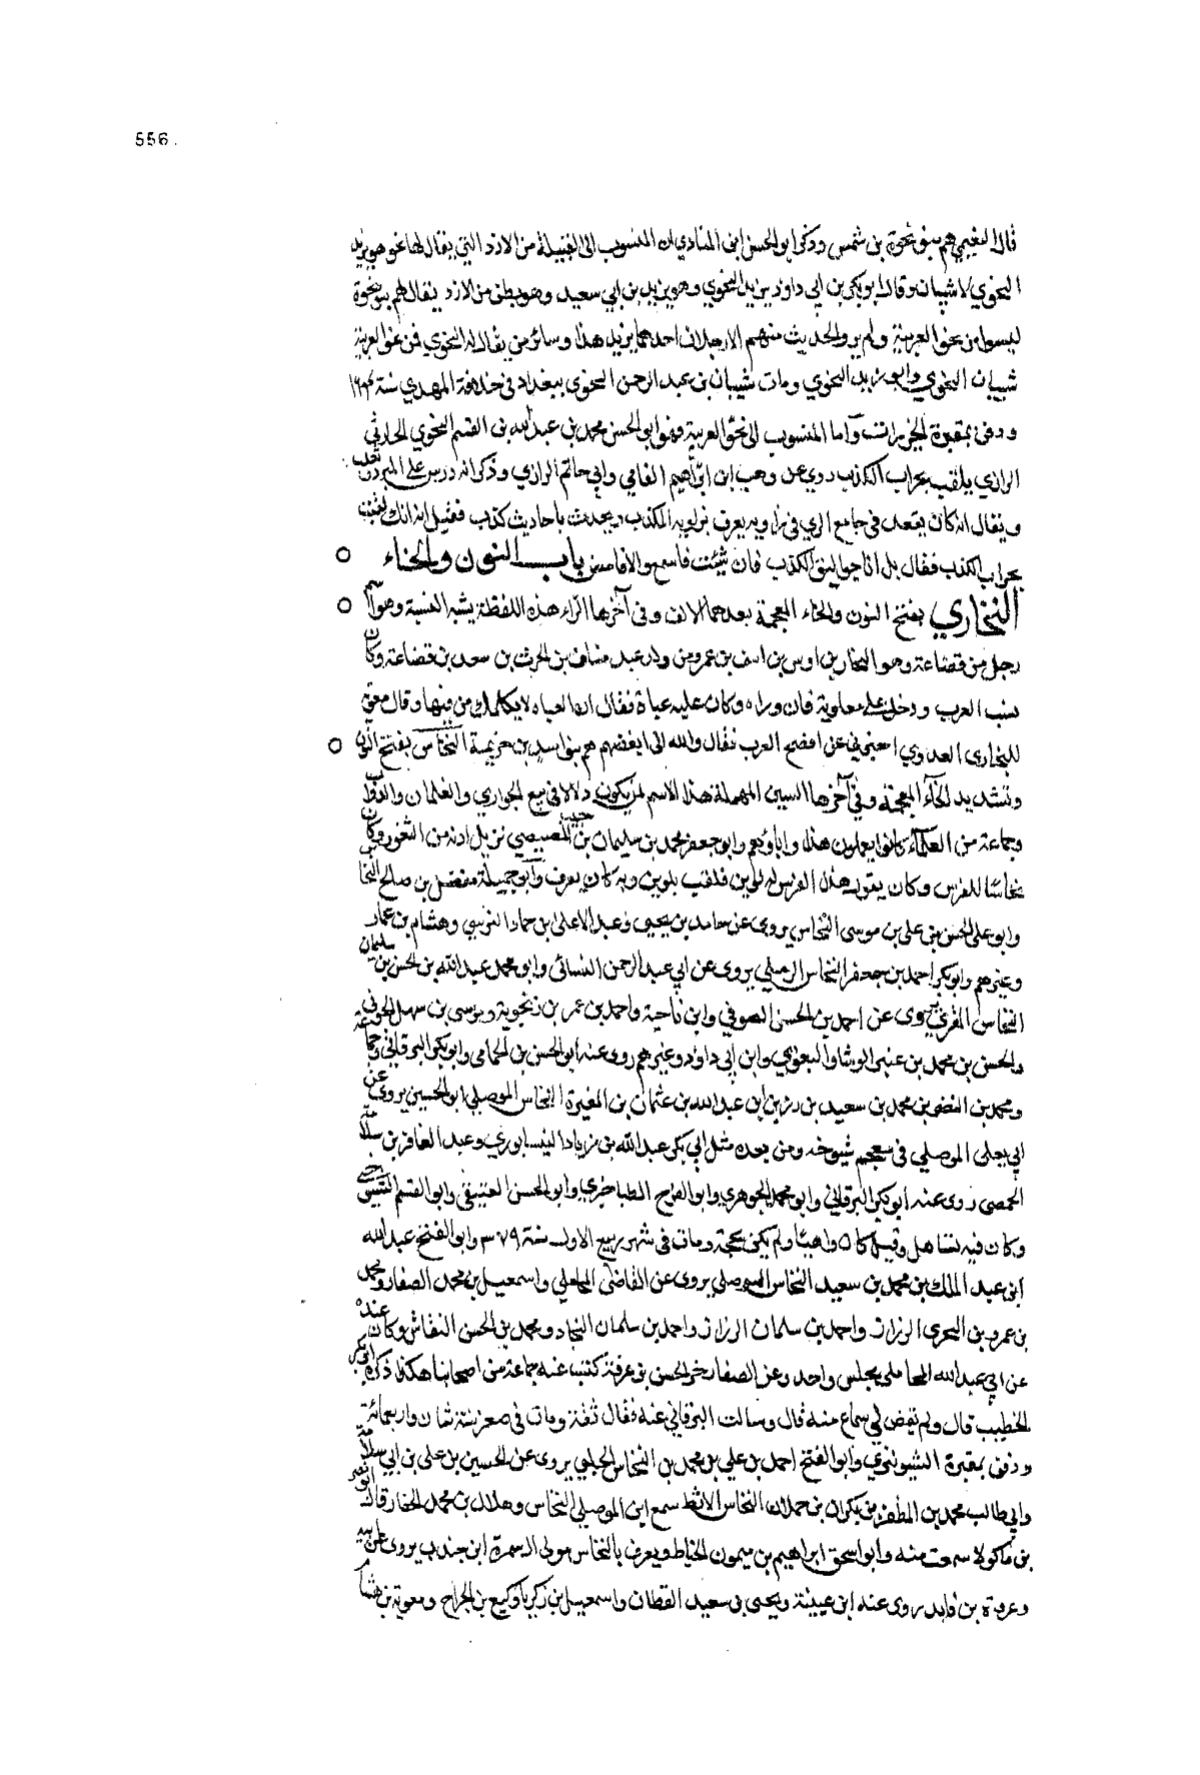 556.
قال النعيمي هم بنو نحوة بن شمس وذكر ابو الحسن ابن المنادي ان المنسوب الى القبيلة من الازد التي يقال لها نحو هو يزيد
النحوي لا شيبان وقال ابو بكر بن ابي داود يزيد النحوي وهو يزيد بن ابي سعيد وهو بطن من الازد يقال لهم بنو نحوة
ليسوا من نحو العربية ولم يرو الحديث منهم الا رجلان احدهما يزيد هذا وسائر من يقال له النحوي فمن نحو العربية
شيبان النحوي وابو زيد النحوي ومات شيبان بن عبد الرحمن النحوي ببغداد في خلافة المهدي سنة ١٦٤
ودفن بمقبرة الخيزران وأما المنسوب الى نحو العربية فهو ابو الحسن محمد بن عبد الله بن القسم النحوي الحارثي
الرازي يلقب بجراب الكذب روى عن وهب ابن ابراهيم الفامي وابي حاتم الرازي وذكر انه درس على المبرد وثعلب
ويقال انه كان يقعد في جامع الري في زاوية يعرف بزاوية الكذب ويحدث باحاديث كذب فقيل له انك لقبت
بجراب الكذب فقال بل انا جواليق الكذب فان شئت فاسمع والا فامض باب النون والخاء
النخاري بفتح النون والخاء المعجمة بعدهما الالف وفي آخرها الراء هذه اللفظة يشبه النسبة وهو اسم
رجل من قضاعة وهو النخار بن اوس بن عمرو من ولد عبد مناف بن الحرث بن سعد بن قضاعة وكان
نسب العرب ودخل على معاوية وكان عليه عباة فقال ان العباه لا يكلمك من فيها وقال معوية
للنخاري العدوي اخبرني عن افصح العرب فقال والله اني هم بنو اسد بن خزيمة النخاس بفتح النون
وتشديد الخاء المعجمة وفي آخرها السين المهملة هذا الاسم لمن يكون دلالا في بيع الجواري والغلمان والدواب
وجماعة من العلماء كانوا يعملون هذا واباؤهم وابو جعفر محمد بن سليمان بن حبيب المصيصي نزيل اذنه من الثغور وكان
نخاسا للفرس وكان يقول هذا الفرس له لوين فلقب بلوين وبه كان يعرف وابو جميلة مفضل بن صالح النخا
وابو علي الحسن بن علي بن موسى النخاس يروى عن حامد بن يحيى وعبد الاعلى بن حماد النرسي وهشام بن عمار
وغيرهم وابو بكر احمد بن جعفر النخاس الرملي يروى عن ابي عبد الرحمن النسائي وابو محمد عبد الله بن الحسن بن سليمان
النخاس المقرئ روى عن احمد بن الحسن الصوفي وابن ناجية واحمد بن عمر بن زنجوية وموسى بن سهل الجوني
والحسن بن محمد بن عنبر الوشا والبغوي وابن ابي داود وغيرهم روى عنه ابو الحسن بن الحمامي وابو بكر البرقاني وجماعة
ومحمد بن النضر بن محمد بن سعيد بن رزين ابن عبد الله بن عثمان بن المغيرة النخاس الموصلي ابو الحسين يروى عن
ابي يعلى الموصلي في معجم شيوخه ومن بعده مثل ابي بكر عبد الله بن زياد النيسابوري وعبد الغافر بن سلامة
الحمصي روى عنه ابو بكر البرقاني وابو محمد الجوهري وابو الفرج الطناجيري وابو الحسن العتيقي وابو القسم التنوخي
وكان فيه تساهل وقيل كان واهيا ولم يكن بحجة ومات في شهر ربيع الاول سنة ٣٧٩ وابو الفتح عبد الله
ابن عبد الملك بن محمد بن سعيد النخاس الموصلي يروى عن القاضي المحاملي واسمعيل بن محمد الصفار ومحمد
بن عمرو بن البحري الرزاز واحمد بن سلمان الرزاز واحمد بن سلمان النجاد ومحمد بن الحسن النقاش وكان عنده
عن ابي عبد الله المحاملي مجلس واحد وعن الصفار جزو الحسن بن عرفة كتب عنه جماعة من اصحابنا هكذا ذكره ابو بكر
الخطيب قال ولم يقض لي سماع منه قال وسالت البرقاني عنه فقال ثقة ومات في صفر سنة ثمان واربعمائة
ودفن بمقبرة الشونيزي وابو الفتح احمد بن علي بن محمد بن النخاس الحلبي يروى عن الحسين بن علي بن ابي سلامة
وابي طالب محمد بن المظفر بن بكران بن حمدان النخاس سمع ابن الموصلي النخاس وهلال بن محمد الحفار قال ابو نصر
بن ماكولا سمعت منه وابو اسحق ابراهيم بن ميمون الخياط ويعرف بالنخاس مولى ال سمرة ابن جندب يروى عن ابيه
وعروة بن فايد روى عنه ابن عيينة ويحيى بن سعيد القطان واسمعيل بن زكريا ووكيع بن الجراح ومعوية بن هشام